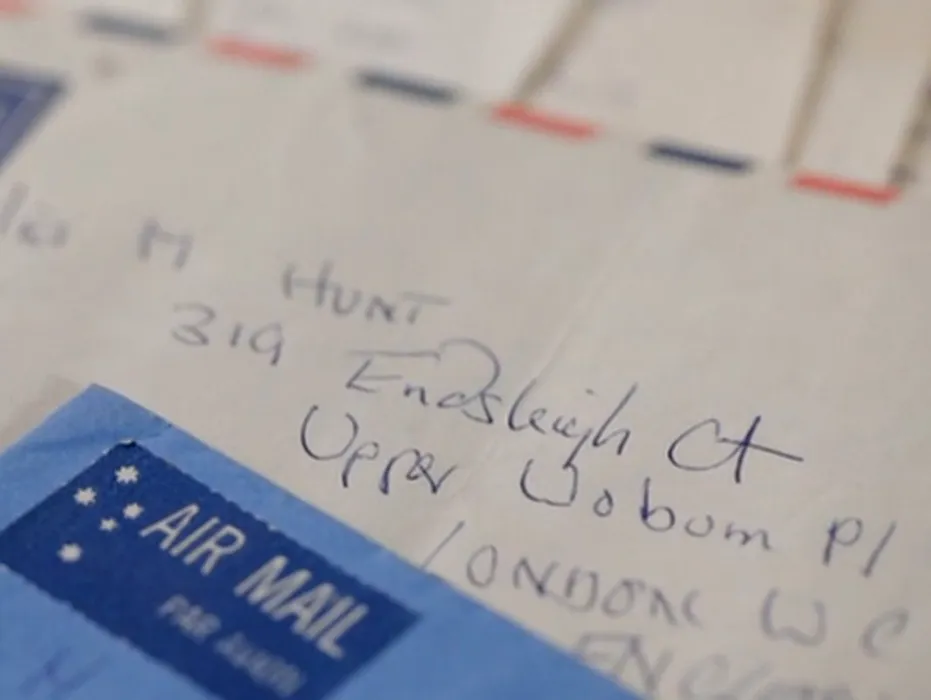 M HUNT
319 Endsleigh Ct
Upper Woburn Pl
LONDON W C
AIR MAIL
PAR AVION